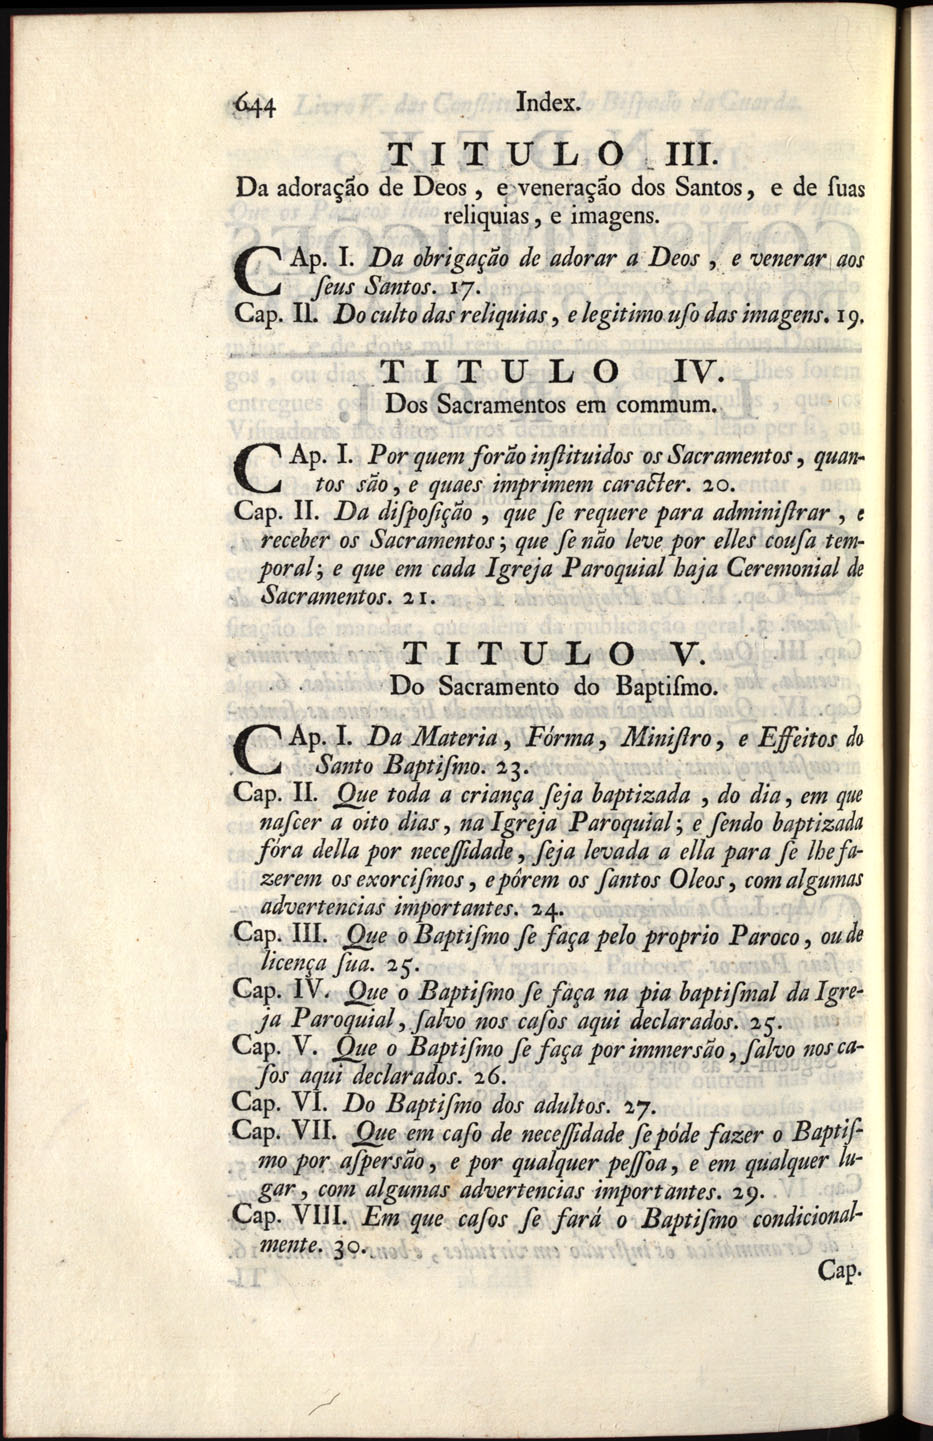 644 Index.
TITULO III.
Da adoração de Deos, e veneração dos Santos, e de ſuas
reliquias, e imagens.
CAp. I. Da obrigação de adorar a Deos, e venerar aos
ſeus Santos. 17.
Cap. II. Do culto das reliquias, e legitimo uſo das imagens. 19.
TITULO IV.
Dos Sacramentos em commum.
CAp. I. Por quem forão inſtituidos os Sacramentos, quan-
tos são, e quaes imprimem caracter. 20.
Cap. II. Da diſpoſição, que ſe requere para adminiſtrar, e
receber os Sacramentos; que ſe não leve por elles couſa tem-
poral; e que em cada Igreja Paroquial haja Ceremonial de
Sacramentos. 21.
TITULO V.
Do Sacramento do Baptiſmo.
CAp. I. Da Materia, Fórma, Miniſtro, e Effeitos do
Santo Baptiſmo. 23.
Cap. II. Que toda a criança ſeja baptizada, do dia, em que
naſcer a oito dias, na Igreja Paroquial; e ſendo baptizada
fóra della por neceſſidade, ſeja levada a ella para ſe lhe fa-
zerem os exorciſmos, e pôrem os ſantos Oleos, com algumas
advertencias importantes. 24.
Cap. III. Que o Baptiſmo ſe faça pelo proprio Paroco, ou de
licença ſua. 25.
Cap. IV. Que o Baptiſmo ſe faça na pia baptiſmal da Igre-
ja Paroquial, ſalvo nos caſos aqui declarados. 25.
Cap. V. Que o Baptiſmo ſe faça por immersão, ſalvo nos ca-
ſos aqui declarados. 26.
Cap. VI. Do Baptiſmo dos adultos. 27.
Cap. VII. Que em caſo de neceſſidade ſe póde fazer o Baptiſ-
mo por aſpersão, e por qualquer peſſoa, e em qualquer lu-
gar, com algumas advertencias importantes. 29.
Cap. VIII. Em que caſos ſe fará o Baptiſmo condicional-
mente. 30.
Cap.